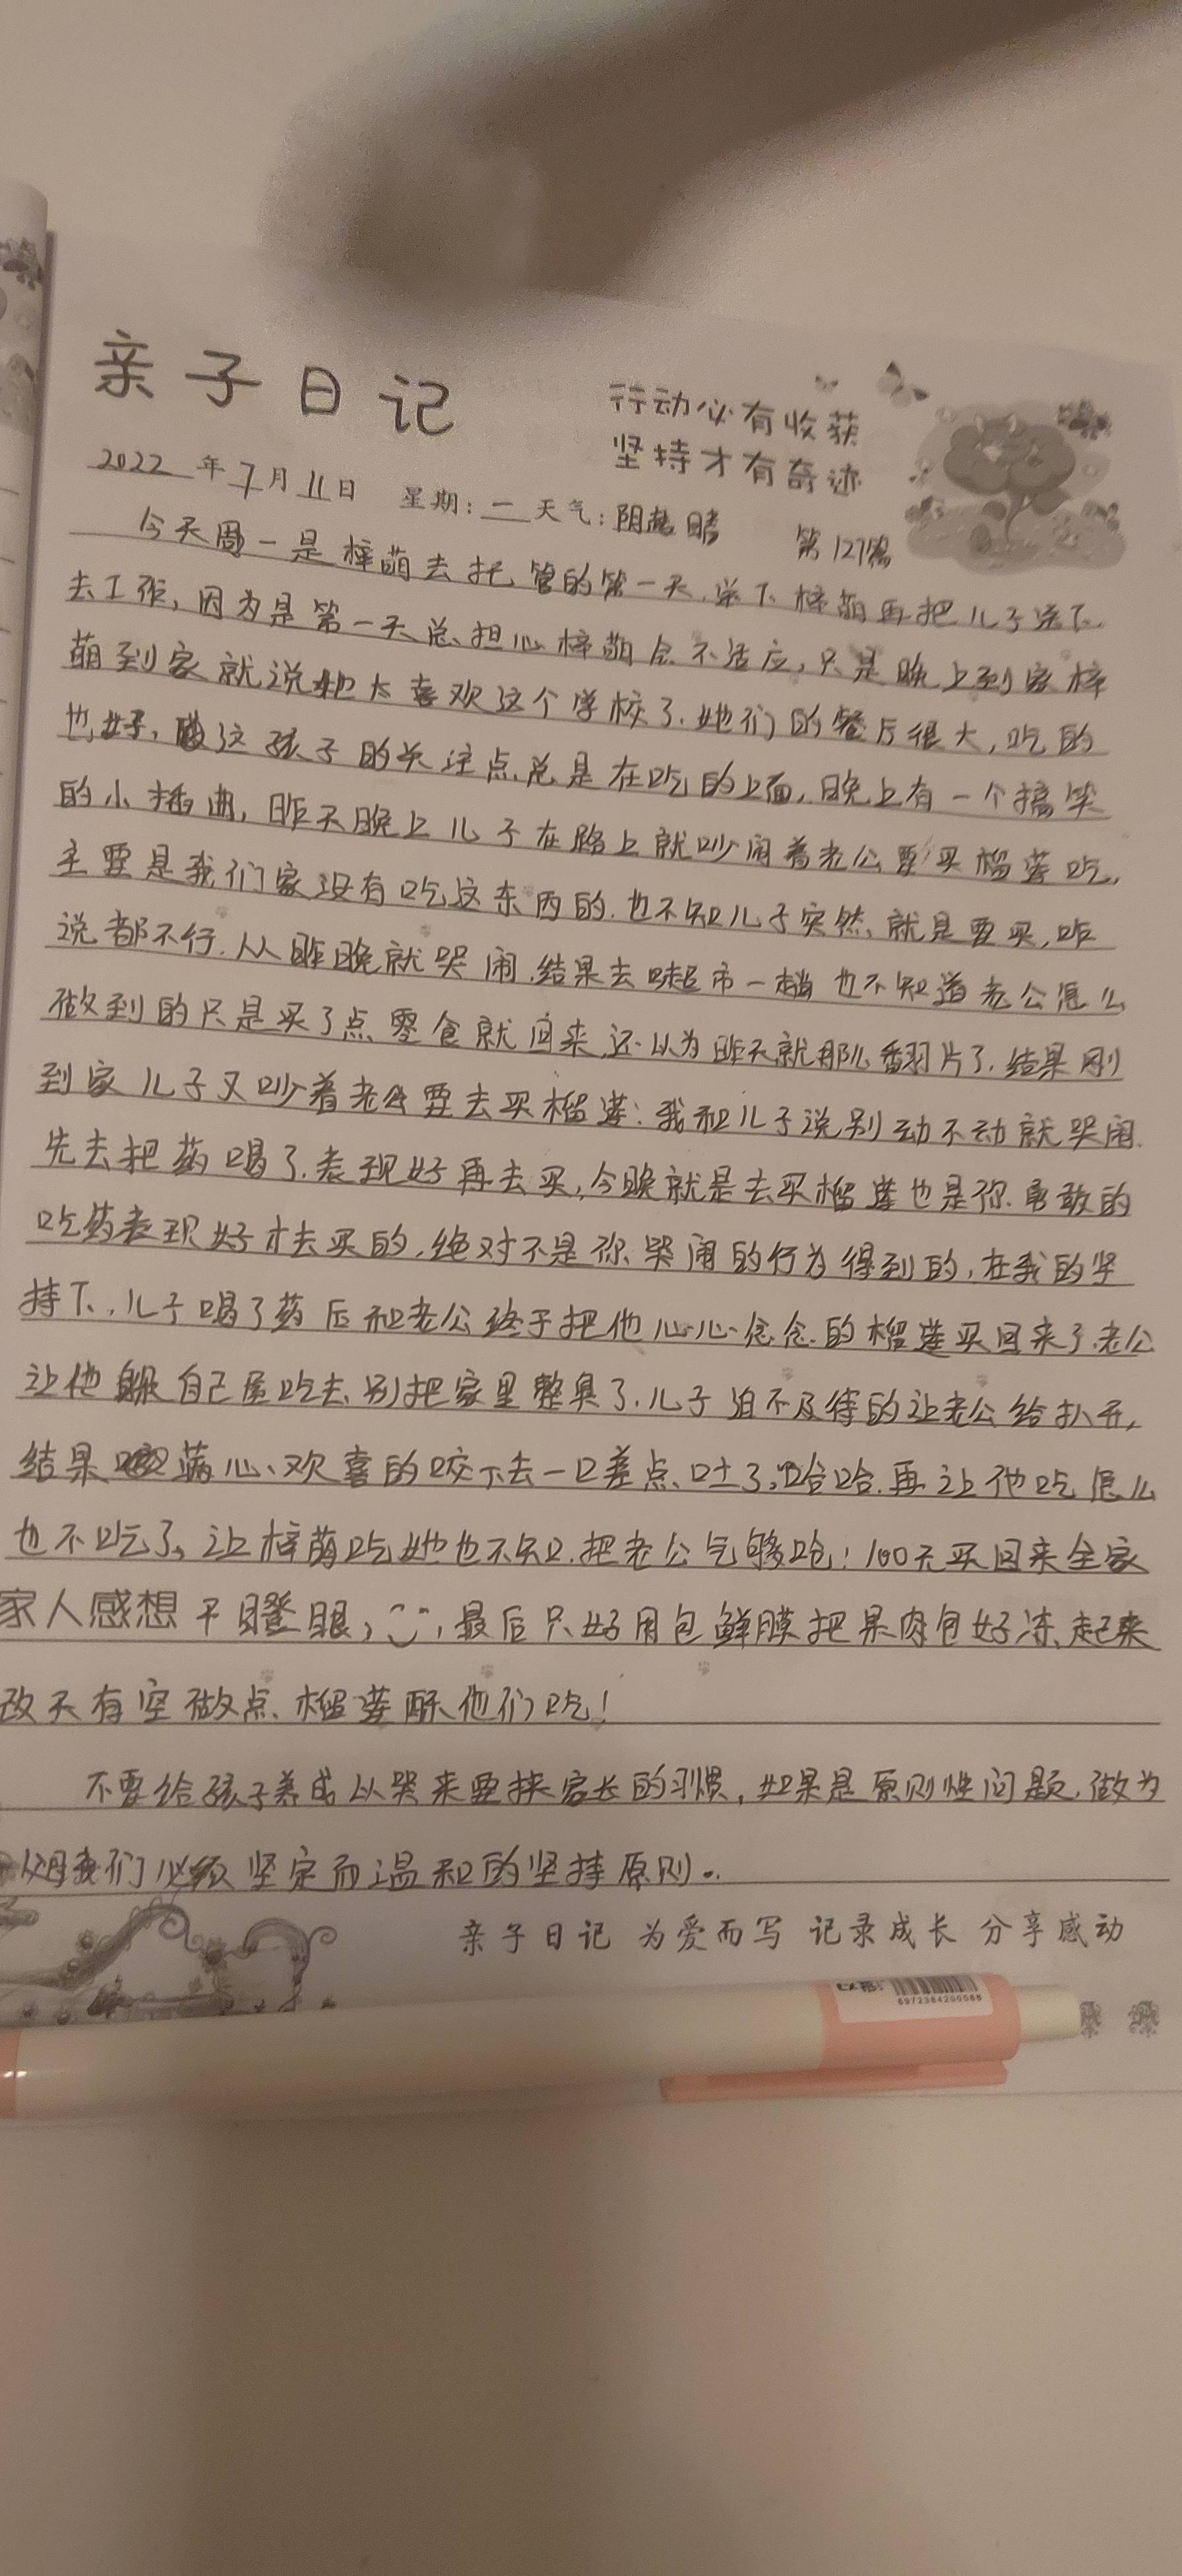 亲子日记
行动必有收获
坚持才有奇迹
2022年7月11日 星期:一 天气:阴越晴 第127篇
今天周一是梓萌去托管的第一天,送下梓萌再把儿子送下
去工作,因为是第一天总担心梓萌会不适应,只是晚上到家梓
萌到家就说她太喜欢这个学校了,她们的餐厅很大,吃的
也好,这孩子的关注点总是在吃的上面,晚上有一个搞笑
的小插曲,昨天晚上儿子在路上就吵闹着老公要买榴莲吃,
主要是我们家没有吃这东西的,也不知儿子突然就是要买,咋
说都不行,从昨晚就哭闹,结果去超市一趟也不知道老公怎么
做到的只是买了点零食就回来,还以为昨天就那么翻片了,结果刚
到家儿子又吵着老公要去买榴莲:我和儿子说别动不动就哭闹
先去把药喝了,表现好再去买,今晚就是去买榴莲也是你勇敢的
吃药表现好才去买的,绝对不是你哭闹的行为得到的,在我的坚
持下,儿子喝了药后和老公终于把他心心念念的榴莲买回来了,老公
让他躲自己屋吃去,别把家里整臭了,儿子迫不及待的让老公给扒开,
结果满心欢喜的咬下去一口差点吐了,哈哈,再让他吃怎么
也不吃了,让梓萌吃她也不知,把老公气够呛!100元买回来全家
家人感想 干瞪眼,最后只好用包鲜膜把果肉包好冻起来
改天有空做点榴莲酥他们吃!
不要给孩子养成以哭来要挟家长的习惯,如果是原则性问题,做为
父母我们必须坚定而温和的坚持原则..
亲子日记 为爱而写 记录成长 分享感动
6972384200588